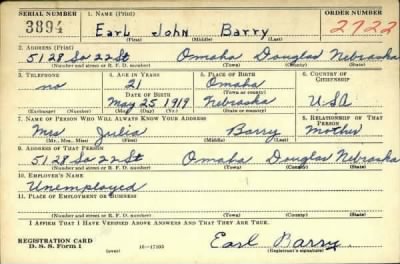 SERIAL NUMBER 1. NAME (Print) ORDER NUMBER
3894 Earl John Barry 2722
(First) (Middle) (Last)
2. ADDRESS (Print)
5128 So 22 St Omaha Douglas Nebraska
(Number and street or R. F. D. number) (Town) (County) (State)
3. TELEPHONE 4. AGE IN YEARS 5. PLACE OF BIRTH 6. COUNTRY OF CITIZENSHIP
no 21 Omaha
DATE OF BIRTH (Town or county)
May 25 1919 Nebraska USA
(Exchange) (Number) (Mo.) (Day) (Yr.) (State or country)
7. NAME OF PERSON WHO WILL ALWAYS KNOW YOUR ADDRESS 8. RELATIONSHIP OF THAT PERSON
Mrs Julia Barry Mother
(Mr., Mrs., Miss) (First) (Middle) (Last)
9. ADDRESS OF THAT PERSON
5128 So 22 St Omaha Douglas Nebraska
(Number and street or R. F. D. number) (Town) (County) (State)
10. EMPLOYER'S NAME
Unemployed
11. PLACE OF EMPLOYMENT OR BUSINESS
(Number and street or R. F. D. number) (Town) (County) (State)
I AFFIRM THAT I HAVE VERIFIED ABOVE ANSWERS AND THAT THEY ARE TRUE.
REGISTRATION CARD
D. S. S. Form 1 (over) 16-17105 Earl Barry
(Registrant's signature)